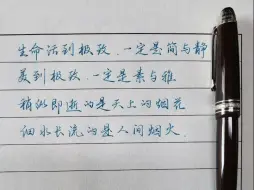 生命活到极致，一定是简与静
美到极致，一定是素与雅
稍纵即逝的是天上的烟花
细水长流的是人间烟火.